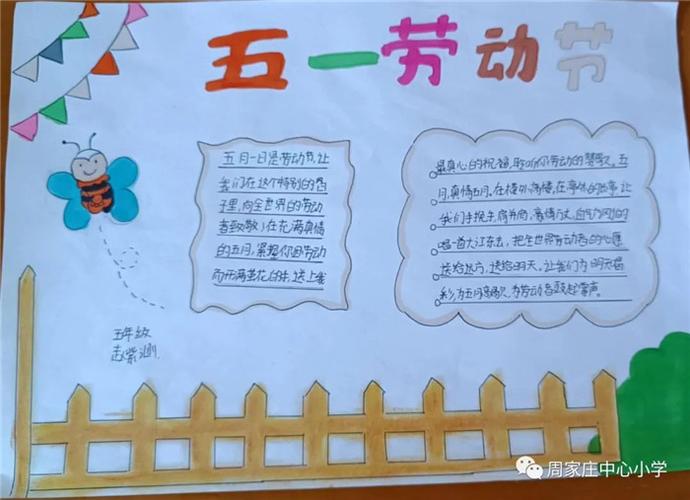 五一劳动节
五月一日是劳动节,让
我们在这个特别的日
子里,向全世界的劳动
者致敬!在充满真情
的五月,紧握你因劳动
而开满茧花的手,送上我
最真心的祝福,聆听你劳动的赞歌。五
月,真情五月,在楼外楼,在亭外的亭,让
我们手挽手,肩并肩,豪情万丈,
唱一首大江东去,把全世界劳动者的心愿
送给远方,送给明天。让我们为明天喝
彩,为五月高歌,为劳动者鼓起掌声。
五年级
赵紫涵
周家庄中心小学